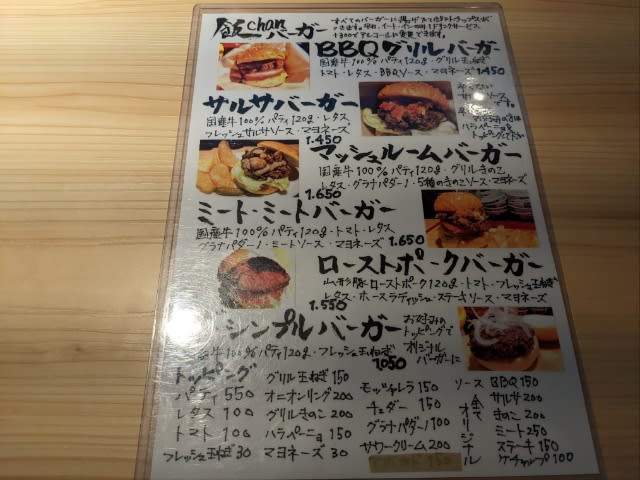 飯chanバーガー
すべてのバーガーに揚げたてポテトチップスが
付きます。平日、イートインのみ1ドリンクサービス
+300でアルコールに変更できます。
BBQグリルバーガー
国産牛100%パティ120g・グリル玉ねぎ
トマト・レタス・BBQソース・マヨネーズ 1,450
サルサバーガー
国産牛100%パティ120g・レタス
フレッシュサルサソース・マヨネーズ
1,450
辛くない
サルサソース
です。
ハラペーニョを
トッピングして下さい
マッシュルームバーガー
国産牛100%パティ120g・グリルきのこ
レタス・グラナパダーノ・5種のきのこソース・マヨネーズ
1,650
ミート・ミートバーガー
国産牛100%パティ120g・トマト・レタス
グラナパダーノ・ミートソース・マヨネーズ 1,650
ローストポークバーガー
山形豚ローストポーク120g・トマト・フレッシュ玉ねぎ
レタス・ホースラディッシュ・ステーキソース・マヨネーズ
1,550
シンプルバーガー
国産牛100%パティ120g・フレッシュ玉ねぎ
1,050
お好みの
トッピングで
オリジナル
バーガーに
トッピング
パティ 550
レタス 100
トマト 100
フレッシュ玉ねぎ 30
グリル玉ねぎ 150
オニオンリング 200
グリルきのこ 200
ハラペーニョ 150
マヨネーズ 30
モッツァレラ 150
チェダー 150
グラナパダーノ 100
サワークリーム 200
ソース
全てオリジナル
BBQ 150
サルサ 200
きのこ 200
ミート 250
ステーキ 150
ケチャップ 100